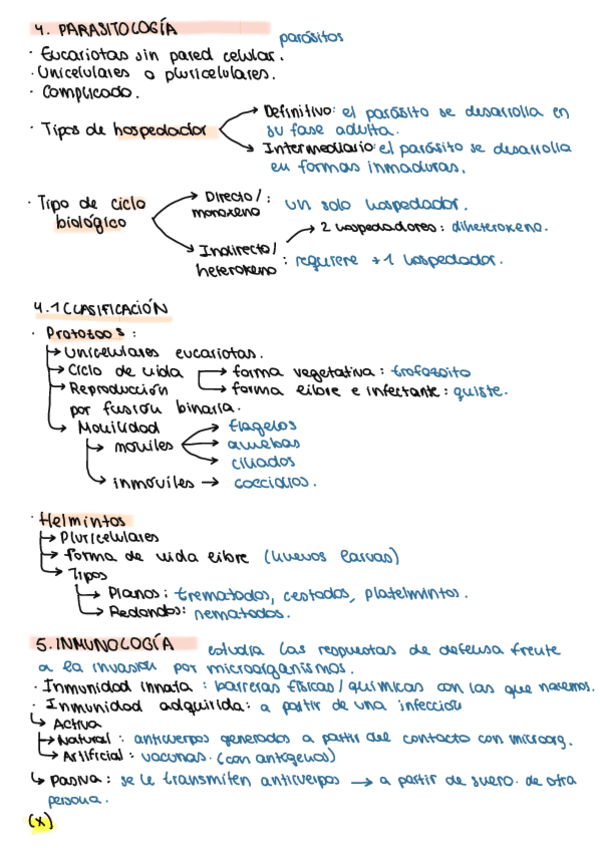 4. PARASITOLOGÍA parásitos
· Eucariotas sin pared celular.
· Unicelulares o pluricelulares.
· Complicado.
· Tipos de hospedador
→ Definitivo: el parásito se desarrolla en
su fase adulta.
→ Intermediario: el parásito se desarrolla
en formas inmaduras.
· Tipo de ciclo
biológico
→ Directo/ : un solo hospedador.
monoxeno
→ 2 hospedadores: diheteroxeno.
→ Indirecto/
heteroxeno : requiere +1 hospedador.
4.1 CLASIFICACIÓN
· Protozoos:
→ Unicelulares eucariotas.
→ Ciclo de vida → forma vegetativa: trofozoito
→ Reproducción → forma libre e infectante: quiste.
por fusión binaria.
→ Movilidad → flagelos
→ móviles → amebas
→ ciliados
→ inmóviles → coccidios.
· Helmintos
→ Pluricelulares
→ Forma de vida libre (huevos larvas)
→ Tipos
→ Planos: trematodos, cestodos, platelmintos.
→ Redondos: nematodos.
5. INMUNOLOGÍA estudia las respuestas de defensa frente
a la invasión por microorganismos.
· Inmunidad innata: barreras físicas/químicas con las que nacemos.
· Inmunidad adquirida: a partir de una infección
↳ Activa
→ Natural: anticuerpos generados a partir del contacto con microorg.
→ Artificial: vacunas. (con antígenos)
↳ Pasiva: se le transmiten anticuerpos → a partir de suero de otra
persona.
(x)